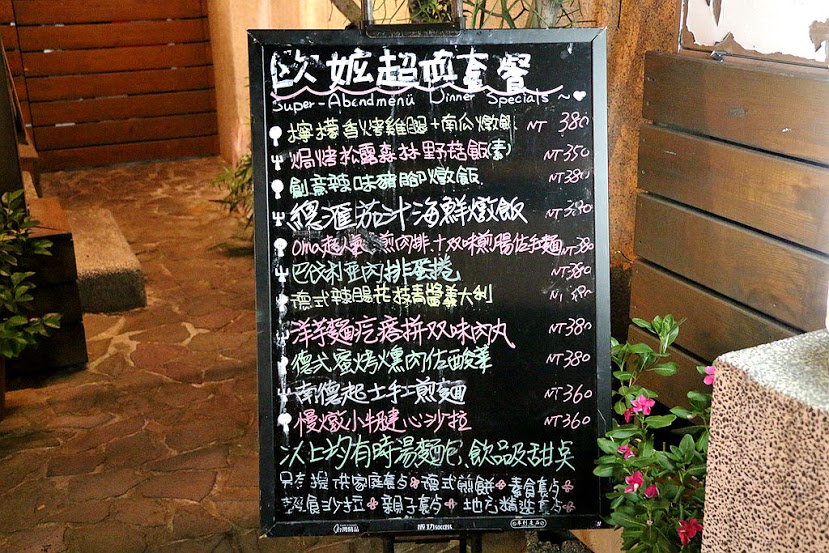 歐嬤超值套餐
Super-Abendmenü Dinner Specials ~
檸檬香烤雞腿+南瓜燉飯 NT 380
焗烤松露森林野菇飯(素) NT 350
創意辣味豬腳燉飯 NT 380
總滙茄汁海鮮燉飯 NT 390
Oma超人氣煎肉排+双味煎腸佐手麵 NT 380
巴伐利亞肉排蛋捲 NT 380
德式辣腸花枝青醬義大利 NT
洋芋麵疙瘩拼双味肉丸 NT 380
德式蜜烤燻肉佐酸菜 NT 380
南德起士手工煎麵 NT 360
慢燉小牛腱心沙拉 NT 360
以上均有附湯麵包、飲品及甜點
另有提供家庭套点 德式煎餅 素食套点
輕食沙拉 親子套点 地方精選套点
台灣精品 成功 success